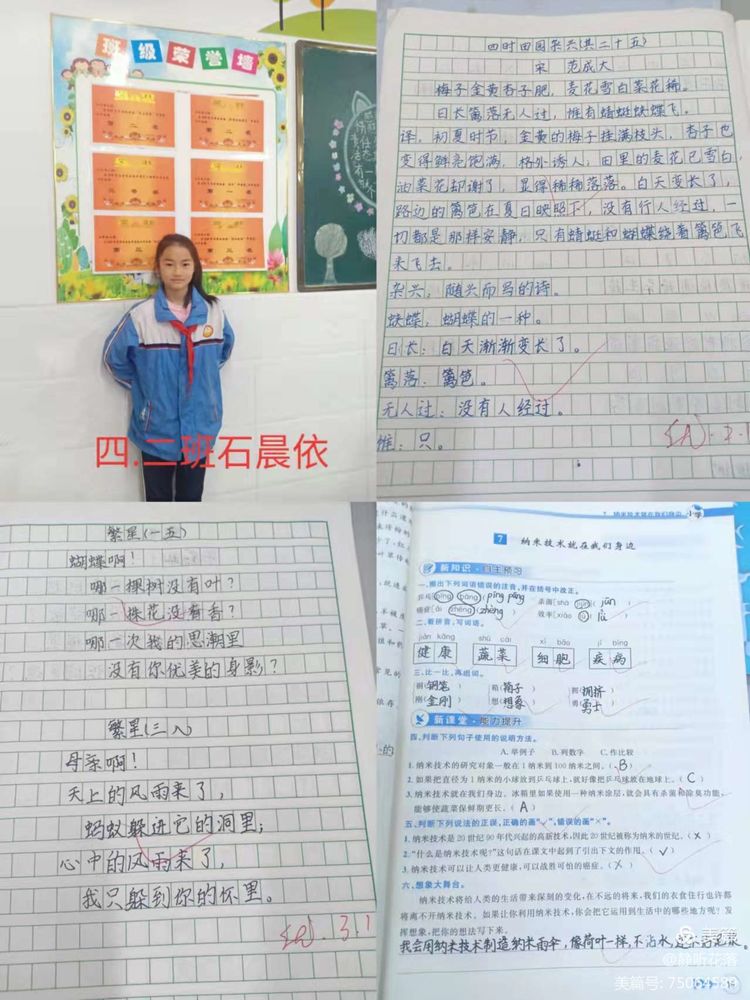 班级荣誉墙
四.二班石晨依
四时田园杂兴(其二十五)
宋 范成大
梅子金黄杏子肥，麦花雪白菜花稀。
日长篱落无人过，惟有蜻蜓蛱蝶飞。
译，初夏时节，金黄的梅子挂满枝头，杏子也
变得鲜亮饱满，格外诱人，田里的麦花已雪白，
油菜花却谢了，显得稀稀落落。白天变长了，
路边的篱笆在夏日映照下，没有行人经过，一
切都是那样安静，只有蜻蜓和蝴蝶绕着篱笆飞
来飞去。
杂兴，随兴而写的诗。
蛱蝶，蝴蝶的一种。
日长：白天渐渐变长了。
篱落：篱笆。
无人过：没有人经过。
惟：只。
繁星(一五)
蝴蝶啊！
哪一棵树没有叶？
哪一株花没有香？
哪一次我的思潮里
没有你优美的身影？
繁星(三八)
母亲啊！
天上的风雨来了，
蚂蚁躲进它的洞里；
心中的风雨来了，
我只躲到你的怀里。
7 纳米技术就在我们身边
新知识·自主预习
一、圈出下列词语错误的注音，并在括号中改正。
二、看拼音，写词语。
jiàn kāng shū cài xì bāo jí bìng
健康 蔬菜 细胞 疾病
三、比一比，再组词。
钢(钢笔) 箱(箱子) 拥(拥挤)
刚(金刚) 想(想象) 勇(勇士)
新课堂·能力提升
四、判断下列句子使用的说明方法。
A.举例子 B.列数字 C.作比较
1.纳米技术的研究对象一般在1纳米到100纳米之间。(B)
2.如果把直径为1纳米的小球放到乒乓球上，就好像把乒乓球放在地球上。(C)
3.纳米技术就在我们身边。冰箱里如果使用一种纳米涂层，就会具有杀菌和除臭功能，
能够使蔬菜保鲜期更长。(A)
五、判断下列说法的正误，正确的画"√"，错误的画"×"。
1.纳米技术是20世纪90年代兴起的高新技术，因此20世纪被称为纳米的世纪。(×)
2."什么是纳米技术呢?"这句话在课文中起到了引出下文的作用。(√)
3.纳米技术可以让人类更健康，可以战胜可怕的癌症。(×)
六、想象大舞台。
纳米技术将给人类的生活带来深刻的变化，在不远的将来，我们的衣食住行也许都
将离不开纳米技术。如果让你利用纳米技术，你会把它运用到生活中的哪些地方呢？发
挥想象，把你的想法写下来。
我会用纳米技术制造纳米雨伞，像荷叶一样，不沾水
美篇
@静听花落